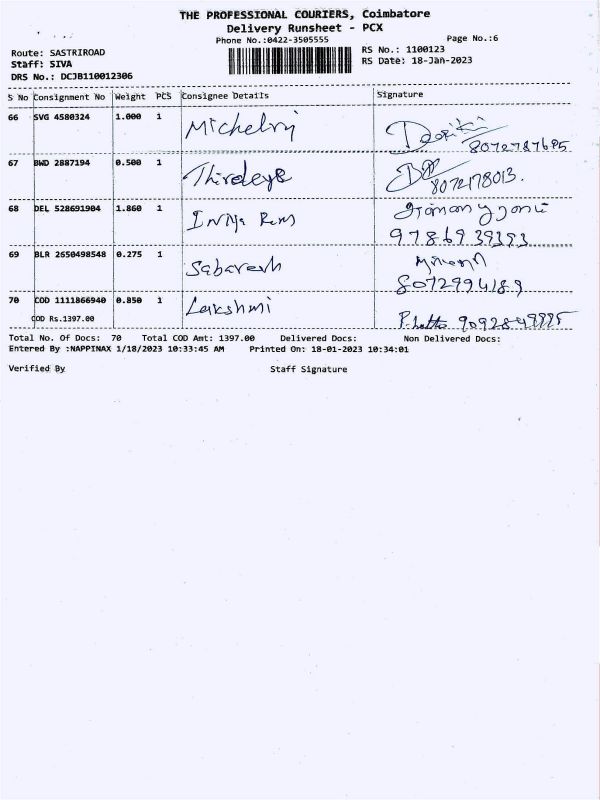 THE PROFESSIONAL COURIERS, Coimbatore
Delivery Runsheet - PCX
Phone No.:0422-3505555
Page No.:6
Route: SASTRIROAD
RS No.: 1100123
Staff: SIVA
RS Date: 18-Jan-2023
DRS No.: DCJB110012306
S No Consignment No Weight PCS Consignee Details Signature
66 SVG 4580324 1.000 1 Michelvy
8072787695
67 BWD 2887194 0.500 1 Thirdeye
8072178013.
68 DEL 528691904 1.860 1 Indya
9786939393
69 BLR 2650498548 0.275 1 Sabaresh
8072994189
70 COD 1111866940 0.850 1 Lakshmi
COD Rs.1397.00
Total No. Of Docs: 70 Total COD Amt: 1397.00 Delivered Docs: Non Delivered Docs:
Entered By :NAPPINAX 1/18/2023 10:33:45 AM Printed On: 18-01-2023 10:34:01
Verified By Staff Signature